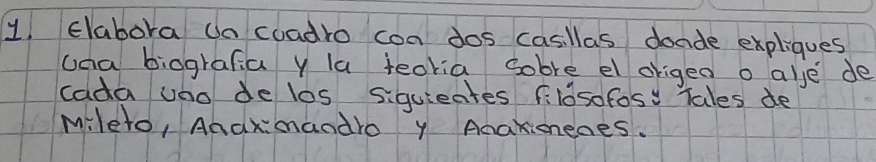 1. Elabora un cuadro con dos casillas donde expliques
una biografia y la teoria sobre el origen o arjé de
cada uno de los siguientes filósofos: Tales de
Mileto, Anaximandro y Anaximenes.